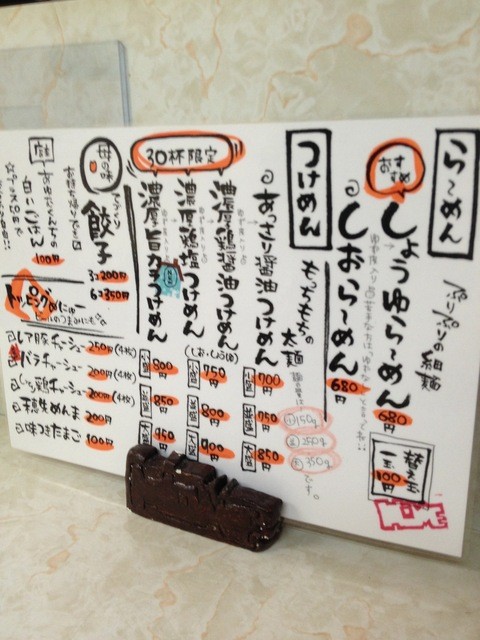 らーめん
ぷりぷりの細麺
おすすめ
しょうゆらーめん
680円
しおらーめん
680円
替え玉
一玉
100円
つけめん
もっちもちの
太麺
小150g
並250g
大350g
です。
あっさり醤油つけめん
小盛 700
並盛 750
大盛 850
30杯限定
濃厚鶏醤油つけめん
濃厚鶏塩つけめん
(しお・しょうゆ)
小盛 750
並盛 800
大盛 900
濃厚旨カラつけめん
小盛 800
並盛 850
大盛 950
母の味
餃子
3コ200円
6コ350円
お持ち帰りできます
白いごはん
100円
トッピングめにゅー
ビールのつまみにも。
レア豚チャーシュー 250円(4枚)
バラチャーシュー 200円(4枚)
鶏チャーシュー 200円(4枚)
穂先めんま 200円
味つきたまご 100円